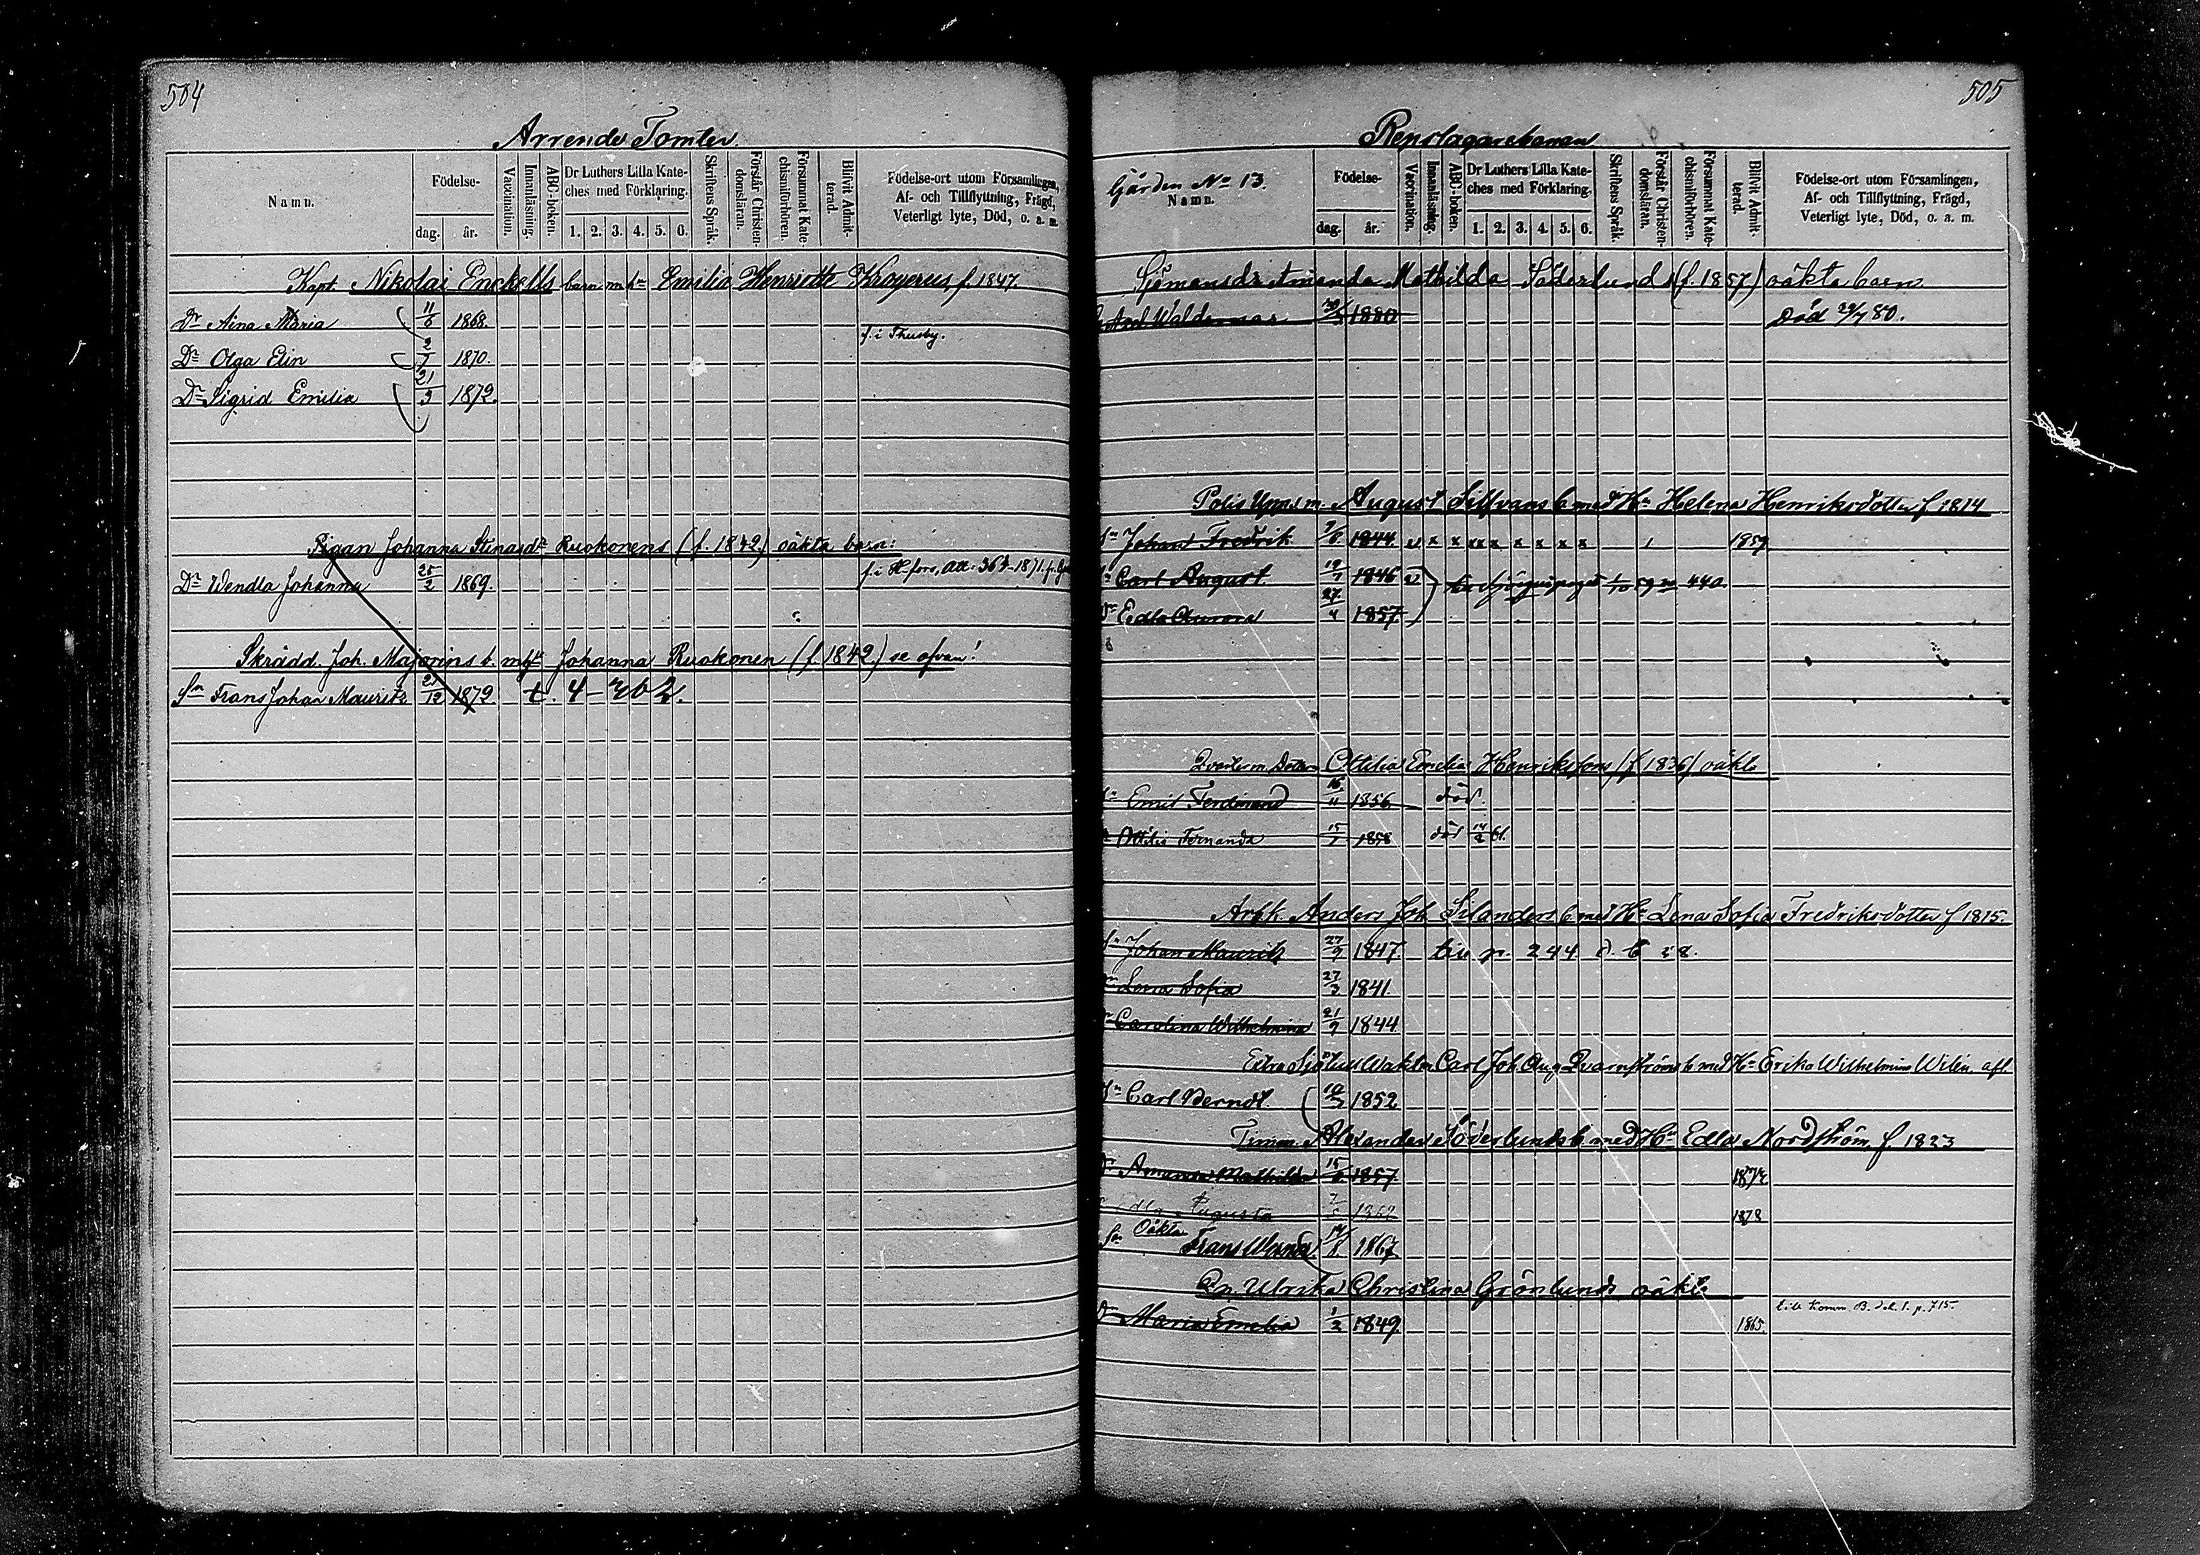 504
Arrende Tomter.
Namn.
Födelse-
dag.
år.
Vaccination.
Innanläsning.
ABC-boken.
Dr Luthers Lilla Kate-
ches med Förklaring.
1. 2. 3. 4. 5. 6.
Skriftens Språk.
Förstår Christen-
domsläran.
Försummat Kate-
chismiförhören.
Blifvit Admit-
terad.
Födelse-ort utom Församlingen,
Af- och Tillflyttning, Frägd,
Veterligt lyte, Död, o. a. m.
Kapt. Nikolai Enckells barn m h Emilia Henriette Kroyerus f. 1847.
Dr Aina Maria 11/6 1868.
f. i Thusby.
Dr Olga Elin 2/7 1870.
Dr Sigrid Emilia 21/3 1872.
Pigan Johanna Stinasdr Ruokonens (f. 1842) oäkta barn:
f. i H-fors, att: 364-1871.
Dr Wendla Johanna 25/2 1869.
Skrädd. Joh. Majorins b. m h Johanna Ruokonen (f 1842) se ofvan!
Sn Frans Johan Mauritz 21/12 1872. t. 4
505
Repslagarebanan
Gården No 13.
Namn.
Födelse-
dag.
år.
Vaccination.
Innanläsning.
ABC-boken.
Dr Luthers Lilla Kate-
ches med Förklaring.
1. 2. 3. 4. 5. 6.
Skriftens Språk.
Förstår Christen-
domsläran.
Försummat Kate-
chismiförhören.
Blifvit Admit-
terad.
Födelse-ort utom Församlingen,
Af- och Tillflyttning, Frägd,
Veterligt lyte, Död, o. a. m.
Sjömansdr Amanda Mathilda Söderlunds (f. 1857) oäkta barn
Axel Waldemar 1880 Död 29/7 80.
Polis Uppsm. August Silfvans b med Hu Helena Henriksdotter f 1814
Sn Johan Fredrik 7/8 1844 v x x xx x x x x x 1 1859
Sn Carl August 19/7 1846 v
Dr Edla Aurora 27/4 1857
440.
Ottilia Emelia Henriksson (f 1836) oäkta
Sn Emil Ferdinand 16/11 1856 död.
Ottilia Fernanda 15/7 1858 död 14/2 61.
Arbk Anders Joh Silanders b med Hu Lena Sofia Fredriksdotter f 1815.
Sn Johan Mauritz 27/9 1847. till p. 244
Dr Lena Sofia 27/3 1841.
Dr Carolina Wilhelmina 21/9 1844
Extra Wakten Carl Joh Aug Qvarnströms b med Hu Erika Wilhelmina Wilén. afl.
Sn Carl Berndt 1852
Timm. Alexander Söderlunds b med Hu Edla Nordström f 1823
Dr Amanda Mathilda 1857. 1874
Augusta 1878
Sn Oäkta Frans Werner 1867
Qn Ulrika Christina Grönlunds oäkt.
Dr Maria Emelia 1/2 1849. 1865.
till Komm. B. del. 1. p. 715.